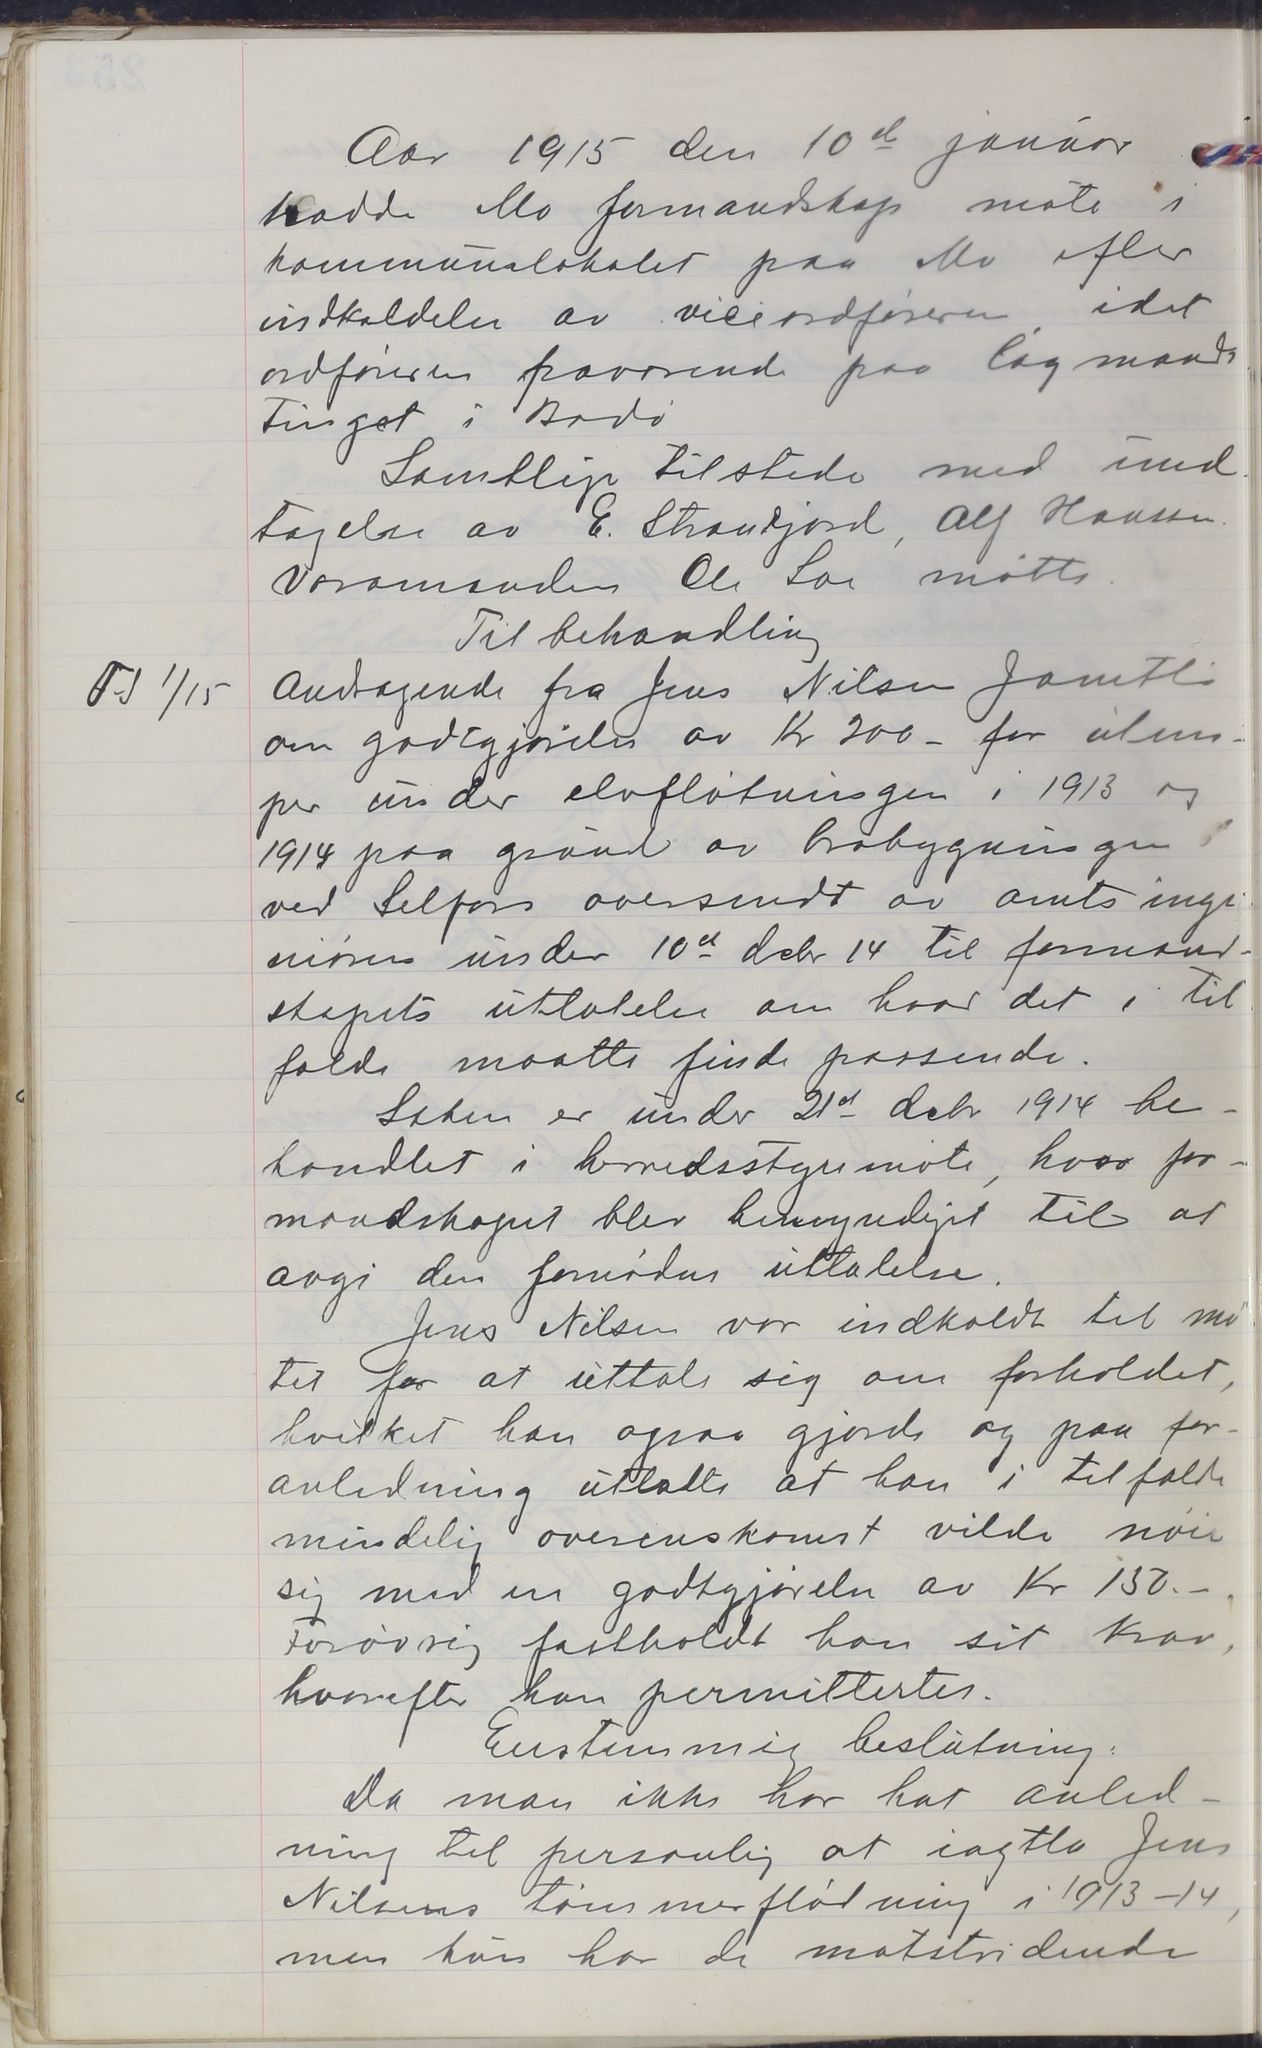 Aar 1915 den 10de januar
hadde Mo formandskap møte i
kommunelokalet paa Mo efter
indkaldelse av viceordføreren idet
ordføreren fraværende paa lagmands
tinget i Bodø
Samtlige tilstede med und.
tagelse av E. Strandjord, Alf Hansen.
Varamanden Ole Loe møtte.
Til behandling
FS 1/15 Andragende fra Jens Nilsen Jamtli
om godtgjørelse av Kr 200 - for ulem-
per under elvefløtningen i 1913 og
1914 paa grund av brobygningen
ved Selfors oversendt av amtsinge
niøren under 10de debr 14 til formand-
skapets uttalelse om hvad det i til
fælde maatte finde passende.
Saken er under 21de debr 1914 be-
handlet i herredsstyremøte, hvor for-
mandskapet blev bemyndiget til at
avgi den fornødne uttalelse.
Jens Nilsen var indkaldt til mø
tet for at uttale sig om forholdet,
hvilket han ogsaa gjorde og paa for-
anledning uttalte at han i tilfælde
mindelig overenskomst vilde nøie
sig med en godtgjørelse av Kr 150.-.
Forøvrig fastholdt han sit krav,
hvorefter han permittertes.
Enstemmig beslutning:
Da man ikke har hat anled-
ning til personlig at iagtta Jens
Nilsens tømmerflødning i 1913-14,
men kun har de motstridende